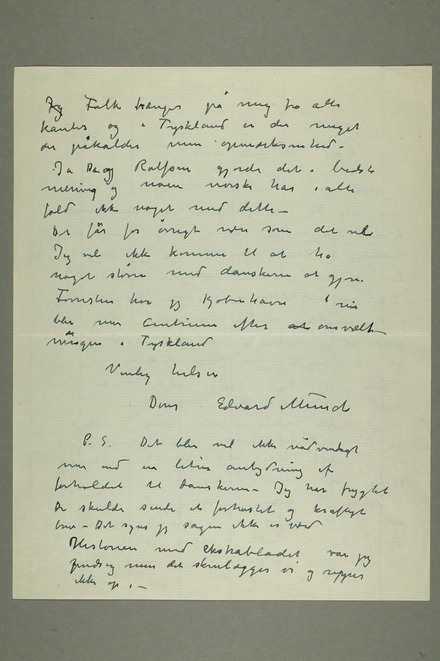 Folk trænger på mig fra alle
kanter og i Tyskland er der meget
der påkalder min opmerksomhed.
Ja De og Rolfsen gjorde det i bedste
mening og noen norske har i alle
fald ikke noget med dette –
Det får for øvrigt være som det vil
Jeg vil ikke komme til at ha
noget større med danskerne at gjøre.
Forresten har jeg Kjøbenhavn i
blir mer efter
i Tyskland
Venlig hilsen
Deres Edvard Munch
P. S. Det blir vel ikke nødvendigt
mer end en liten antydning af
forholdet til danskerne – Jeg har frygtet
De skulde sende et og kraftigt
brev – Det synes jeg sagen ikke er værd
Historien med Ekstrabladet var jeg
men det skrinlægger vi og rippes
ikke op. –